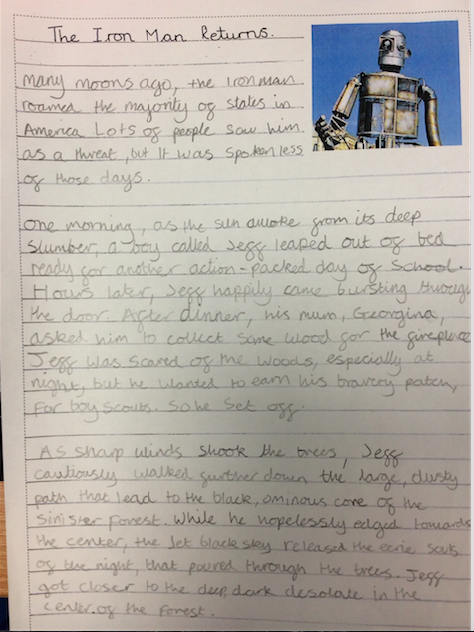 The Iron Man Returns.
Many moons ago, the Ironman
roamed the majority of states in
America Lots of people saw him
as a threat, but It was spoken less
of those days.
One morning, as the sun awoke from its deep
slumber, a boy called Jeff leaped out of bed
ready for another action-packed day of School.
Hours later, Jeff happily came bursting through
the door. After dinner, his mum, Georgina,
asked him to collect some wood for the fireplace
Jeff was scared of the woods, especially at
night, but he wanted to earn his bravery patch,
for boy scouts. So he set off.
As sharp winds shook the trees, Jeff
cautiously walked further down the large, dusty
path that lead to the black, ominous core of the
sinister forest. While he hopelessly edged towards
the center, the Jet black sky released the eerie souls
of the night, that poured through the trees. Jeff
got closer to the deep, dark desolate in the
center of the Forest.